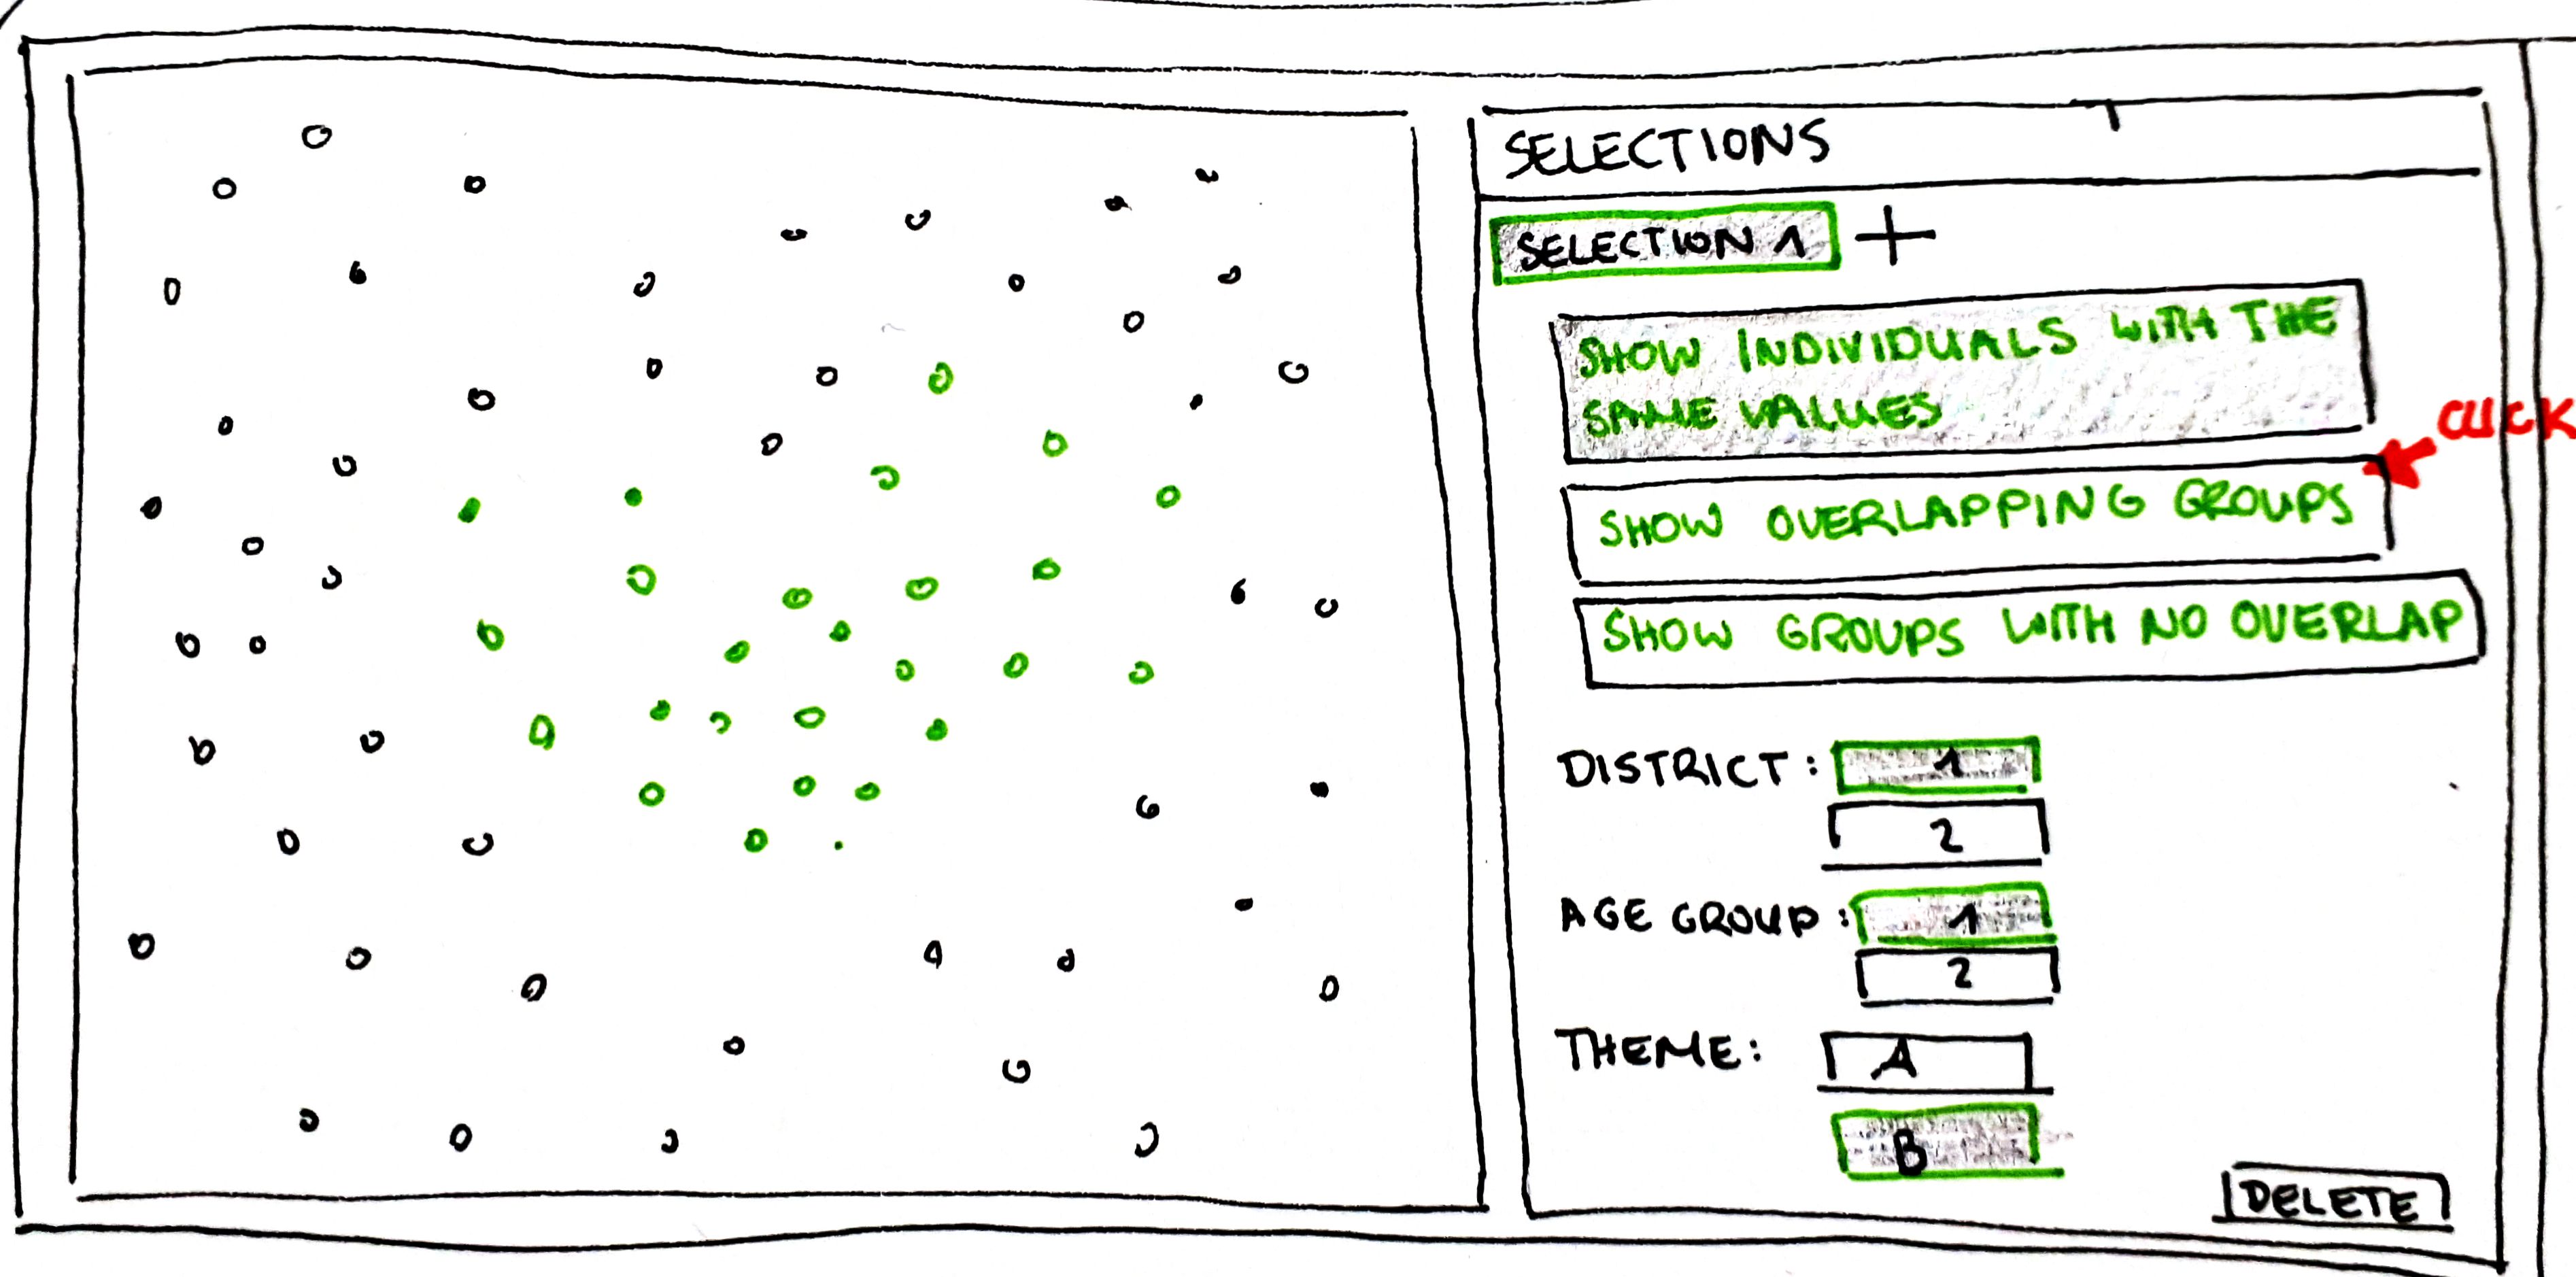 SELECTIONS
SELECTION 1 +
SHOW INDIVIDUALS WITH THE
SAME VALUES
CLICK
SHOW OVERLAPPING GROUPS
SHOW GROUPS WITH NO OVERLAP
DISTRICT: 1
2
AGE GROUP: 1
2
THEME: A
B
DELETE